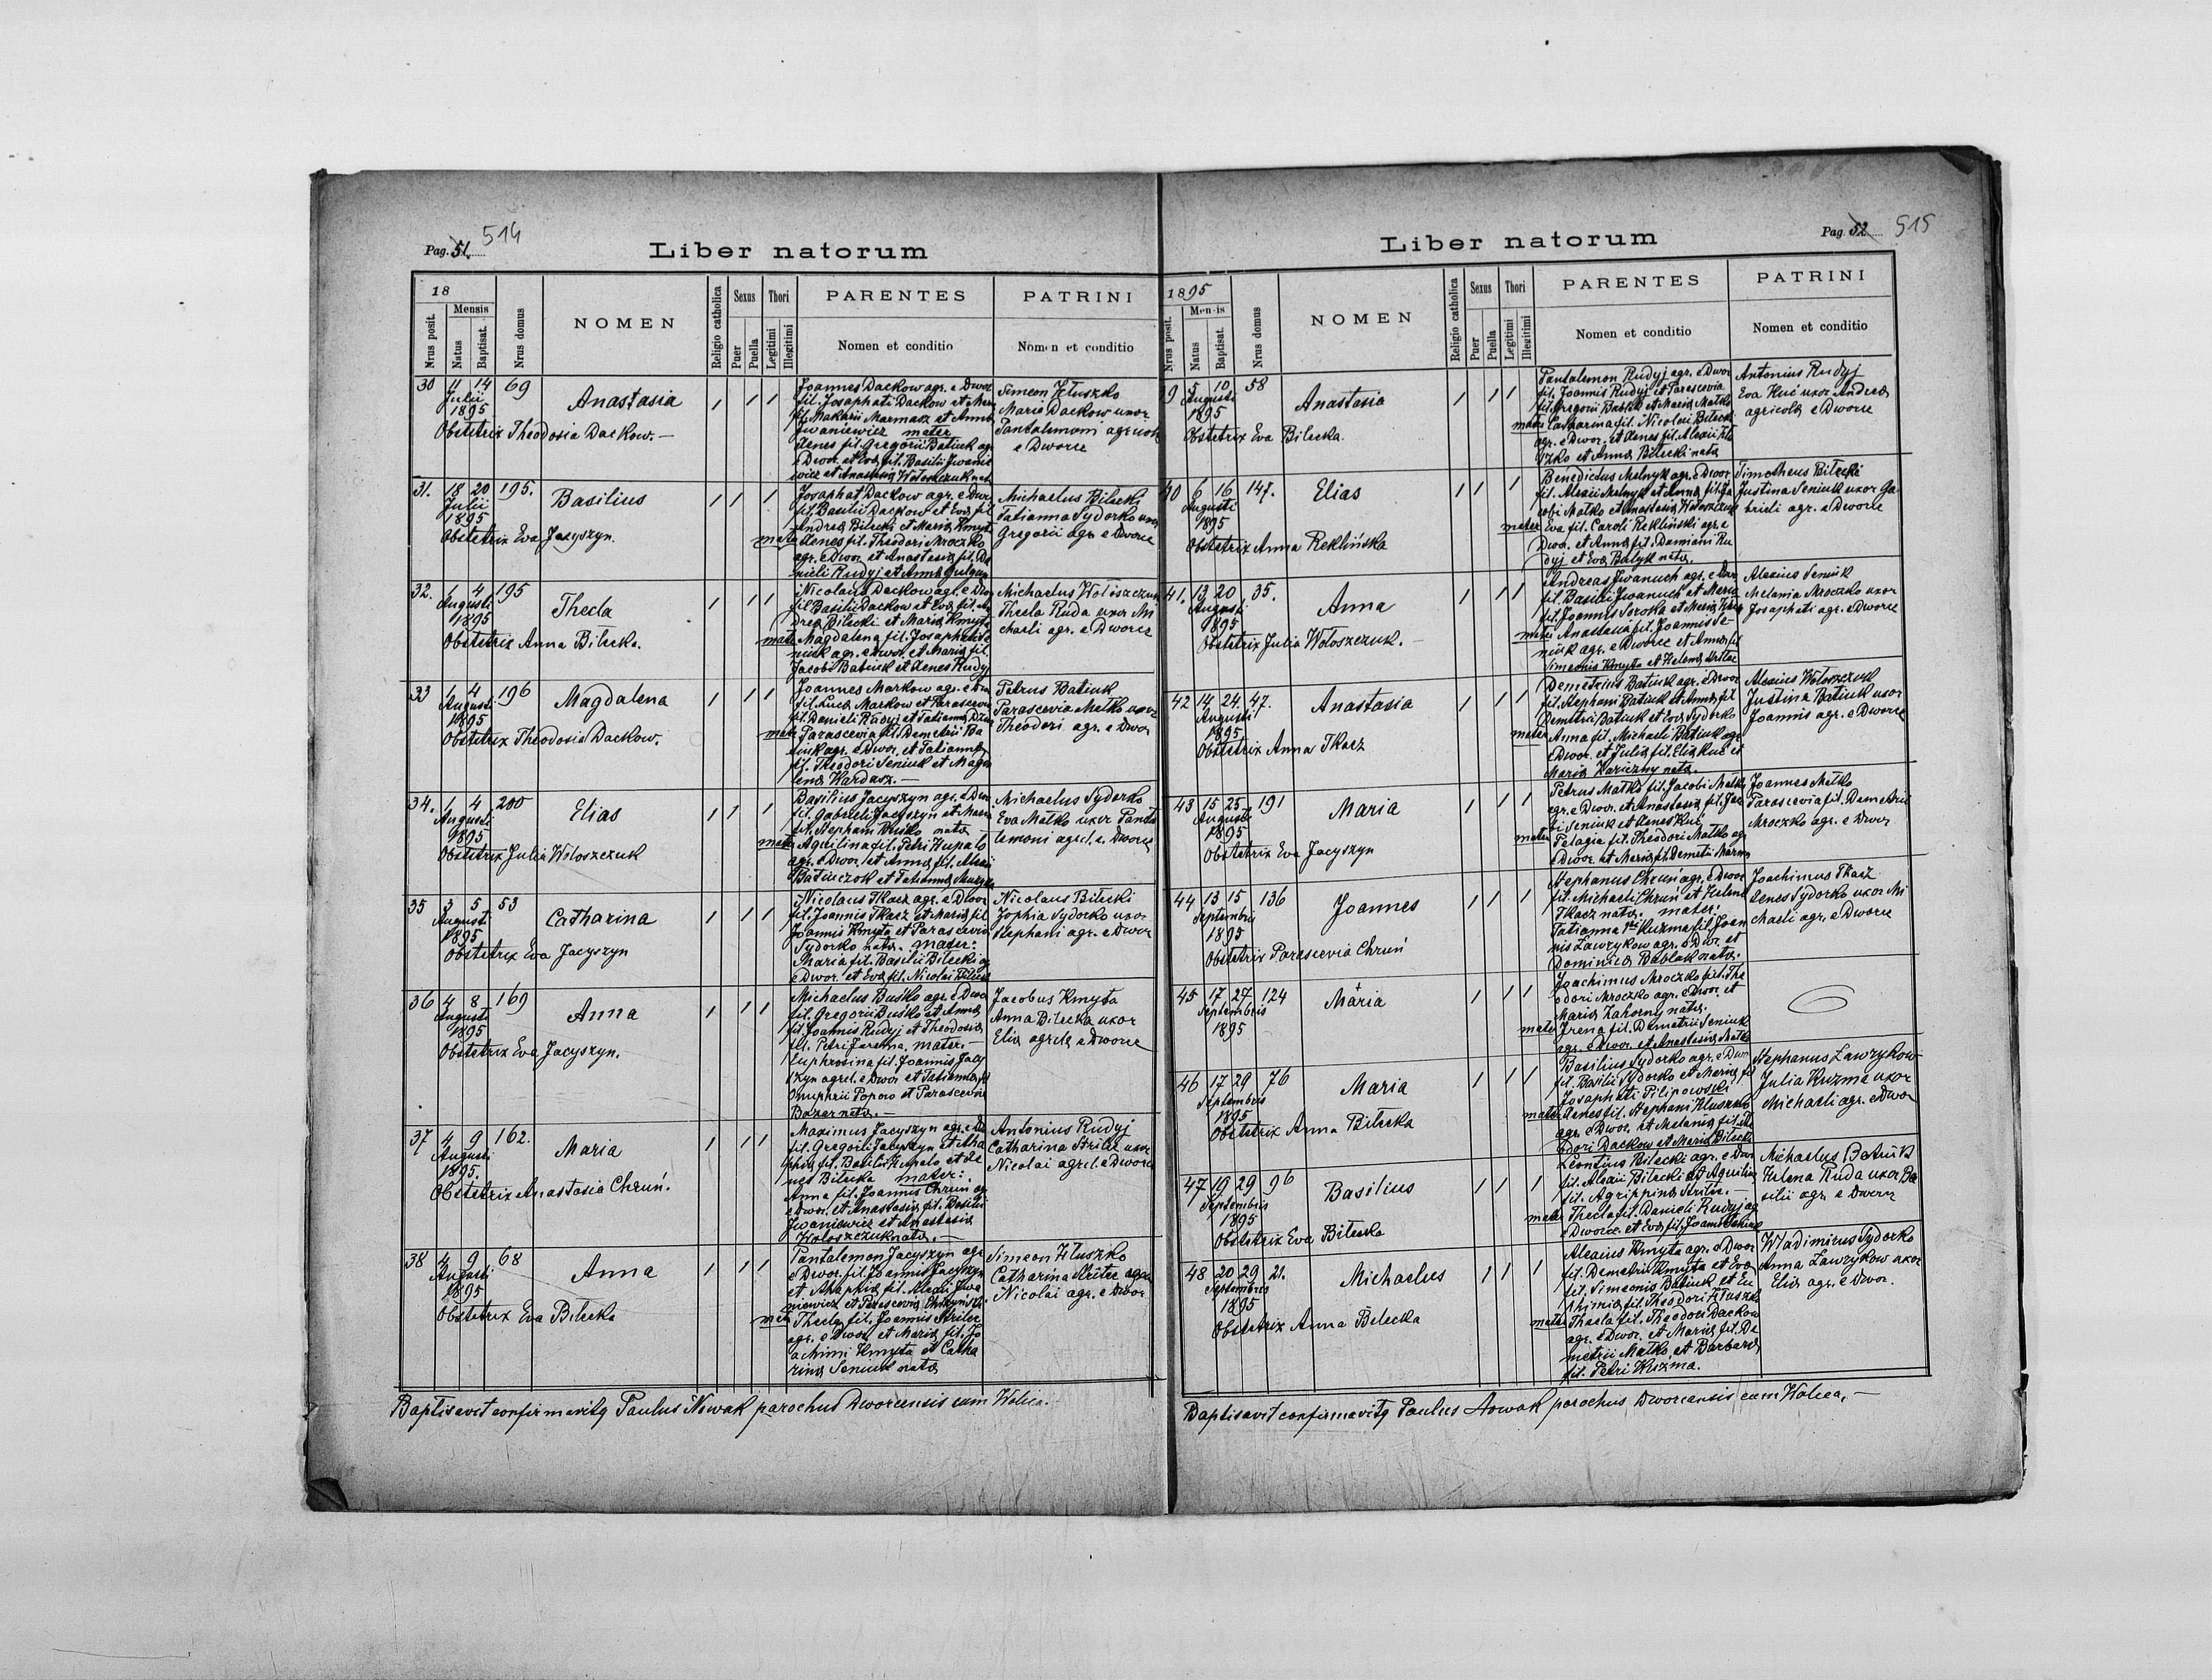 Pag. 51. 514
Liber natorum
18
Nrus posit.
Mensis
Natus
Baptisat.
Nrus domus
NOMEN
Religio catholica
Sexus
Puer
Puella
Thori
Legitimi
Illegitimi
PARENTES
Nomen et conditio
PATRINI
Nomen et conditio
30 11 14 69 Anastasia 1 1 1
Julii
1895
Obstetrix Theodosia Dackow. —
Joannes Dackow agr. e Dwor
fil. Josaphati Dackow et
fil. Makarii Marmasz et Anna
Iwaniewicz mater
Xenes fil. Gregorii Batiuk agr
e Dwor. et Eva fil. Basilii Iwanie
wicz et Anastasia Wołoszczuk nata
Simeon Hłuszko
Maria Dackow uxor
Pantalemoni agricola
e Dworce
31. 18 20 195. Basilius 1 1 1
Julii
1895
Obstetrix Eva Jacyszyn.
Josaphat Dackow agr. e Dwor
fil. Basilii Dackow et Eva fil
Andrea Bilecki et Maria Kmyta
mater Xenes fil. Theodori Mroczko
agr. e Dwor. et Anastasia fil. Da
nieli Rudyj et Anna
Michaelus Bilecki
Tatianna Sydorko uxor
Gregorii agr. e Dworce
32. 1 4 195 Thecla 1 1 1
Augusti
1895
Obstetrix Anna Bilecka.
Nicolaus Dackow agr. e Dwor
fil. Basilii Dackow et Eva fil. An
drea Bilecki et Maria Kmyta
mater Magdalena fil. Josaphati Se
niuk agr. e Dwor. et Maria fil.
Jacobi Batiuk et Xenes Rudyj
Michaelus Wołoszczuk
Thecla Ruda uxor Mi
chaeli agr. e Dworce
33 1 4 196 Magdalena 1 1 1
Augusti
1895
Obstetrix Theodosia Dackow.
Joannes Markow agr. e Dwor
fil. Luca Markow et Parascevia
fil. Danieli Rudyj et Tatianna
mater Parascevia fil. Demetrii Ba
tiuk agr. e Dwor. et Tatianna
fil. Theodori Seniuk et Magda
lena Kardasz. —
Petrus Batiuk
Parascevia Matko uxor
Theodori agr. e Dwor
34. 1 4 200 Elias 1 1 1
Augusti
1895
Obstetrix Julia Wołoszczuk
Basilius Jacyszyn agr. e Dwor
fil. Gabrieli Jacyszyn et Maria
fil. Stephani Buśko nata
mater Aquilina fil. Petri Hupało
agr. e Dwor. et Anna fil. Alexii
Batiuczok et Tatianna
Michaelus Sydorko
Eva Matko uxor Panta
lemoni agricl. e. Dworce
35 3 5 53 Catharina 1 1 1
Augusti
1895
Obstetrix Eva Jacyszyn
Nicolaus Tkacz agr. e Dwor
fil. Joannis Tkacz et Maria fil
Joannis Kmyta et Parascevia
Sydorko nata. mater:
Maria fil. Basilii Bilecki agr
e Dwor. et Eva fil. Nicolai
Nicolaus Bilecki
Zophia Sydorko uxor
Stephani agr. e Dwor
36 4 8 169 Anna 1 1 1
Augusti
1895
Obstetrix Eva Jacyszyn.
Michaelus Buśko agr. e Dwor
fil. Gregorii Buśko et Anna
fil. Joannis Rudyj et Theodosia
fil. Petri Jarema. mater. —
Euphrosina fil. Joannis Jacy
szyn agricl. e Dwor et Tatianna fil
Onuphrii Popow et Parascevia
Bazar nata. —
Jacobus Kmyta
Anna Bilecka uxor
Elia agricla e Dworce
37 4 9 162. Maria 1 1 1
Augusti
1895.
Obstetrix Anastasia Chruń.
Maximus Jacyszyn agr. e Dw
fil. Gregorii Jacyszyn et Aha
phia fil. Basilii Hupało et Xe
nes Bilecka mater:
Anna fil. Joannis Chruń agr
e Dwor. et Anastasia fil. Basilii
Iwaniewicz et Anastasia
Wołoszczuk nata. —
Antonius Rudyj
Catharina Strilec uxor
Nicolai agricl. e Dworce
38 4 9 68 Anna 1 1 1
Augusti
1895
Obstetrix Eva Bilecka
Pantalemon Jacyszyn agr
e Dwor. fil. Joannis Jacyszyn
et Ahaphia fil. Alexii Iwa
niewicz et Parascevia
mater Thecla fil. Joannis Strilec
agr. e Dwor. et Maria fil. Jo
achimi Kmyta et Catha
rina Seniuk nata
Simeon Hłuszko
Catharina Strilec uxor
Nicolai agr. e Dwor
Baptisavit confirmavitq Paulus Nowak parochus Dworcensis cum Wolica. —
Pag. 52 515
Liber natorum
1895
Nrus posit.
Mensis
Natus
Baptisat.
Nrus domus
NOMEN
Religio catholica
Sexus
Puer
Puella
Thori
Legitimi
Illegitimi
PARENTES
Nomen et conditio
PATRINI
Nomen et conditio
39 5 10 58 Anastasia 1 1 1
Augusti
1895
Obstetrix Eva Bilecka.
Pantalemon Rudyj agr. e Dwor
fil. Joannis Rudyj et Parascevia
fil. Gregorii Bablak et Maria Matko
mater Catharina fil. Nicolai Bilecki
agr. e Dwor. et Xenes fil. Alexii Hłu
szko et Anna Bilecki nata
Antonius Rudyj
Eva Kuć uxor Andrea
agricola e Dworce
40 6 16 147. Elias 1 1 1
Augusti
1895
Obstetrix Anna Reklińska
Benedictus Melnyk agr. e Dwor
fil. Alexii Melnyk et Anna fil. Ja
cobi Matko et Anastasia Wołoszczuk
mater Eva fil. Caroli Rekliński agr. e
Dwor. et Anna fil. Damiani Ru
dyj et Eva Batyk nata.
Simotheus Bilecki
Justina Seniuk uxor Ga
brieli agr. e Dworce
41. 13 20 35. Anna 1 1 1
Augusti
1895
Obstetrix Julia Wołoszczuk. —
Andreas Iwanuch agr. e Dwor
fil. Basilii Iwanuch et Maria
fil. Joannis Soroka et Maria
mater Anastasia fil. Joannis Se-
niuk agr. e Dworce et Anna fil
Simeonis Kmyta et Helena
Alexius Seniuk
Melania Mroczko uxor
Josaphati agr. e Dworce
42 14 24. 47. Anastasia 1 1 1
Augusti
1895
Obstetrix Anna Tkacz
Demetrius Batiuk agr. e Dwor
fil. Stephani Batiuk et Anna fil
Demetrii Batiuk et Eva Sydorko
mater Anna fil. Michaeli Batiuk agr
e Dwor. et Julia fil. Elia Kuć et
Maria Waryczny nata.
Alexius Wołoszczuk
Justina Batiuk uxor
Joannis agr. e Dworce
43 15 25 191 Maria 1 1 1
Augusti
1895
Obstetrix Eva Jacyszyn
Petrus Matko fil. Jacobi Matko
agr. e Dwor. et Anastasia fil. Jaco
bi Seniuk et Xenes Kuć
mater Pelagia fil. Theodori Matko agr
e Dwor et Maria fil. Demetrii
Joannes Matko
Parascevia fil. Demetrii
Mroczko agr. e Dwor
44 13 15 136 Joannes 1 1 1
Septembris
1895
Obstetrix Parascevia Chruń
Stephanus Chruń agr. e Dwor
fil. Michaeli Chruń et Helena
Tkacz nata. mater:
Tatianna Kuzma fil. Joan
nis Ławrykow agr. e Dwor. et
Dominica Bablak nata.
Joachimus Tkacz
Xenes Sydorko uxor Mi
chaeli agr. e Dworce
45 17 27 124 + Maria 1 1 1
Septembris
1895
Joachimus Mroczko fil. The
odori Mroczko agr. e Dwor. et
Maria Zahorny nata.
mater Irena fil. Demetrii Seniuk
agr. e Dwor. et Anastasia Matko
46 17 29 76 Maria 1 1 1
Septembris
1895
Obstetrix Anna Bilecka
Basilius Sydorko agr. e Dwor
fil. Basilii Sydorko et Maria fil
Josaphati Pilipowski
mater Xenes fil. Stephani Hłuszko
agr. e Dwor. et Melania fil. The
odori Dackow et Maria Bilecki
Stephanus Ławrykow
Julia Kuzma uxor
Michaeli agr. e Dwor
47 19 29 96 Basilius 1 1 1
Septembris
1895
Obstetrix Eva Bilecka
Leontius Bilecki agr. e Dwor
fil. Alexii Bilecki et Aquilina
fil. Agrippina Strilec. —
mater Thecla fil. Danieli Rudyj agr
e Dworce. et Eva fil. Joannis
Michaelus Batiuk
Helena Ruda uxor Ba
silii agr. e Dwor
48 20 29 21. Michaelus 1 1 1
Septembris
1895
Obstetrix Anna Bilecka
Alexius Kmyta agr. e Dwor
fil. Demetrii Kmyta et Eva
fil. Simeonis Batiuk et Eu
phimia fil. Theodori Hłuszko
mater Thecla fil. Theodori Dackow
agr. e Dwor. et Maria fil. De
metrii Matko, et Barbara
fil. Petri Kuzma.
Wladimirus Sydorko
Anna Ławrykow uxor
Elia agr. e Dwor.
Baptisavit confirmavitq Paulus Nowak parochus Dworcensis cum Wolica. —